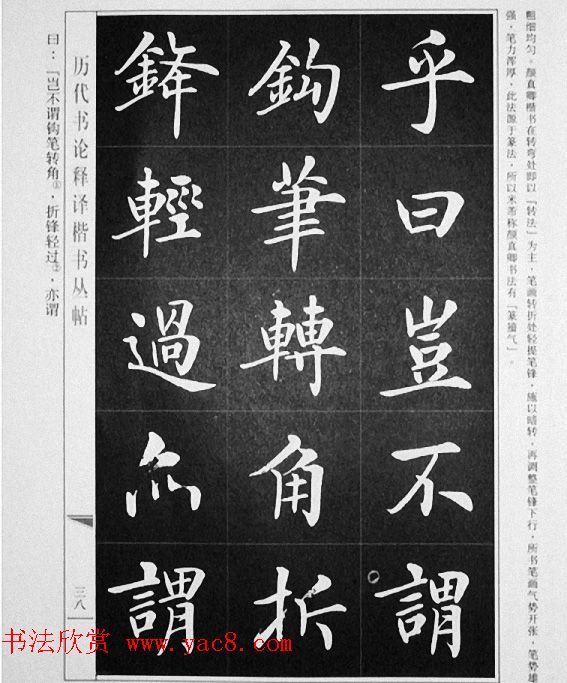 粗细均匀。颜真卿楷书在转弯处即以「转法」为主，笔画转折处轻提笔锋，施以暗转，再调整笔锋下行，所书笔画气势开张，笔势雄
强，笔力浑厚，此法源于篆法，所以来者称颜真卿书法有「篆籀气」。
乎曰豈不謂
鈎筆轉角折
鋒輕過亦謂
历代书论释译楷书丛帖
三八
曰：「岂不谓钩笔转角①，折锋轻过②，亦谓
书法欣赏 www.yac8.com